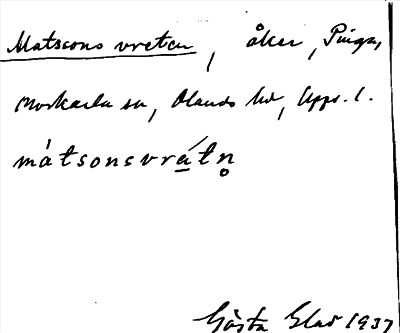 Matssons vreten, åker, Pinga,
Morkarla sn, Olands hd, Upps. l.
mátsonsvrát̥n̥
Gösta Glad 1937